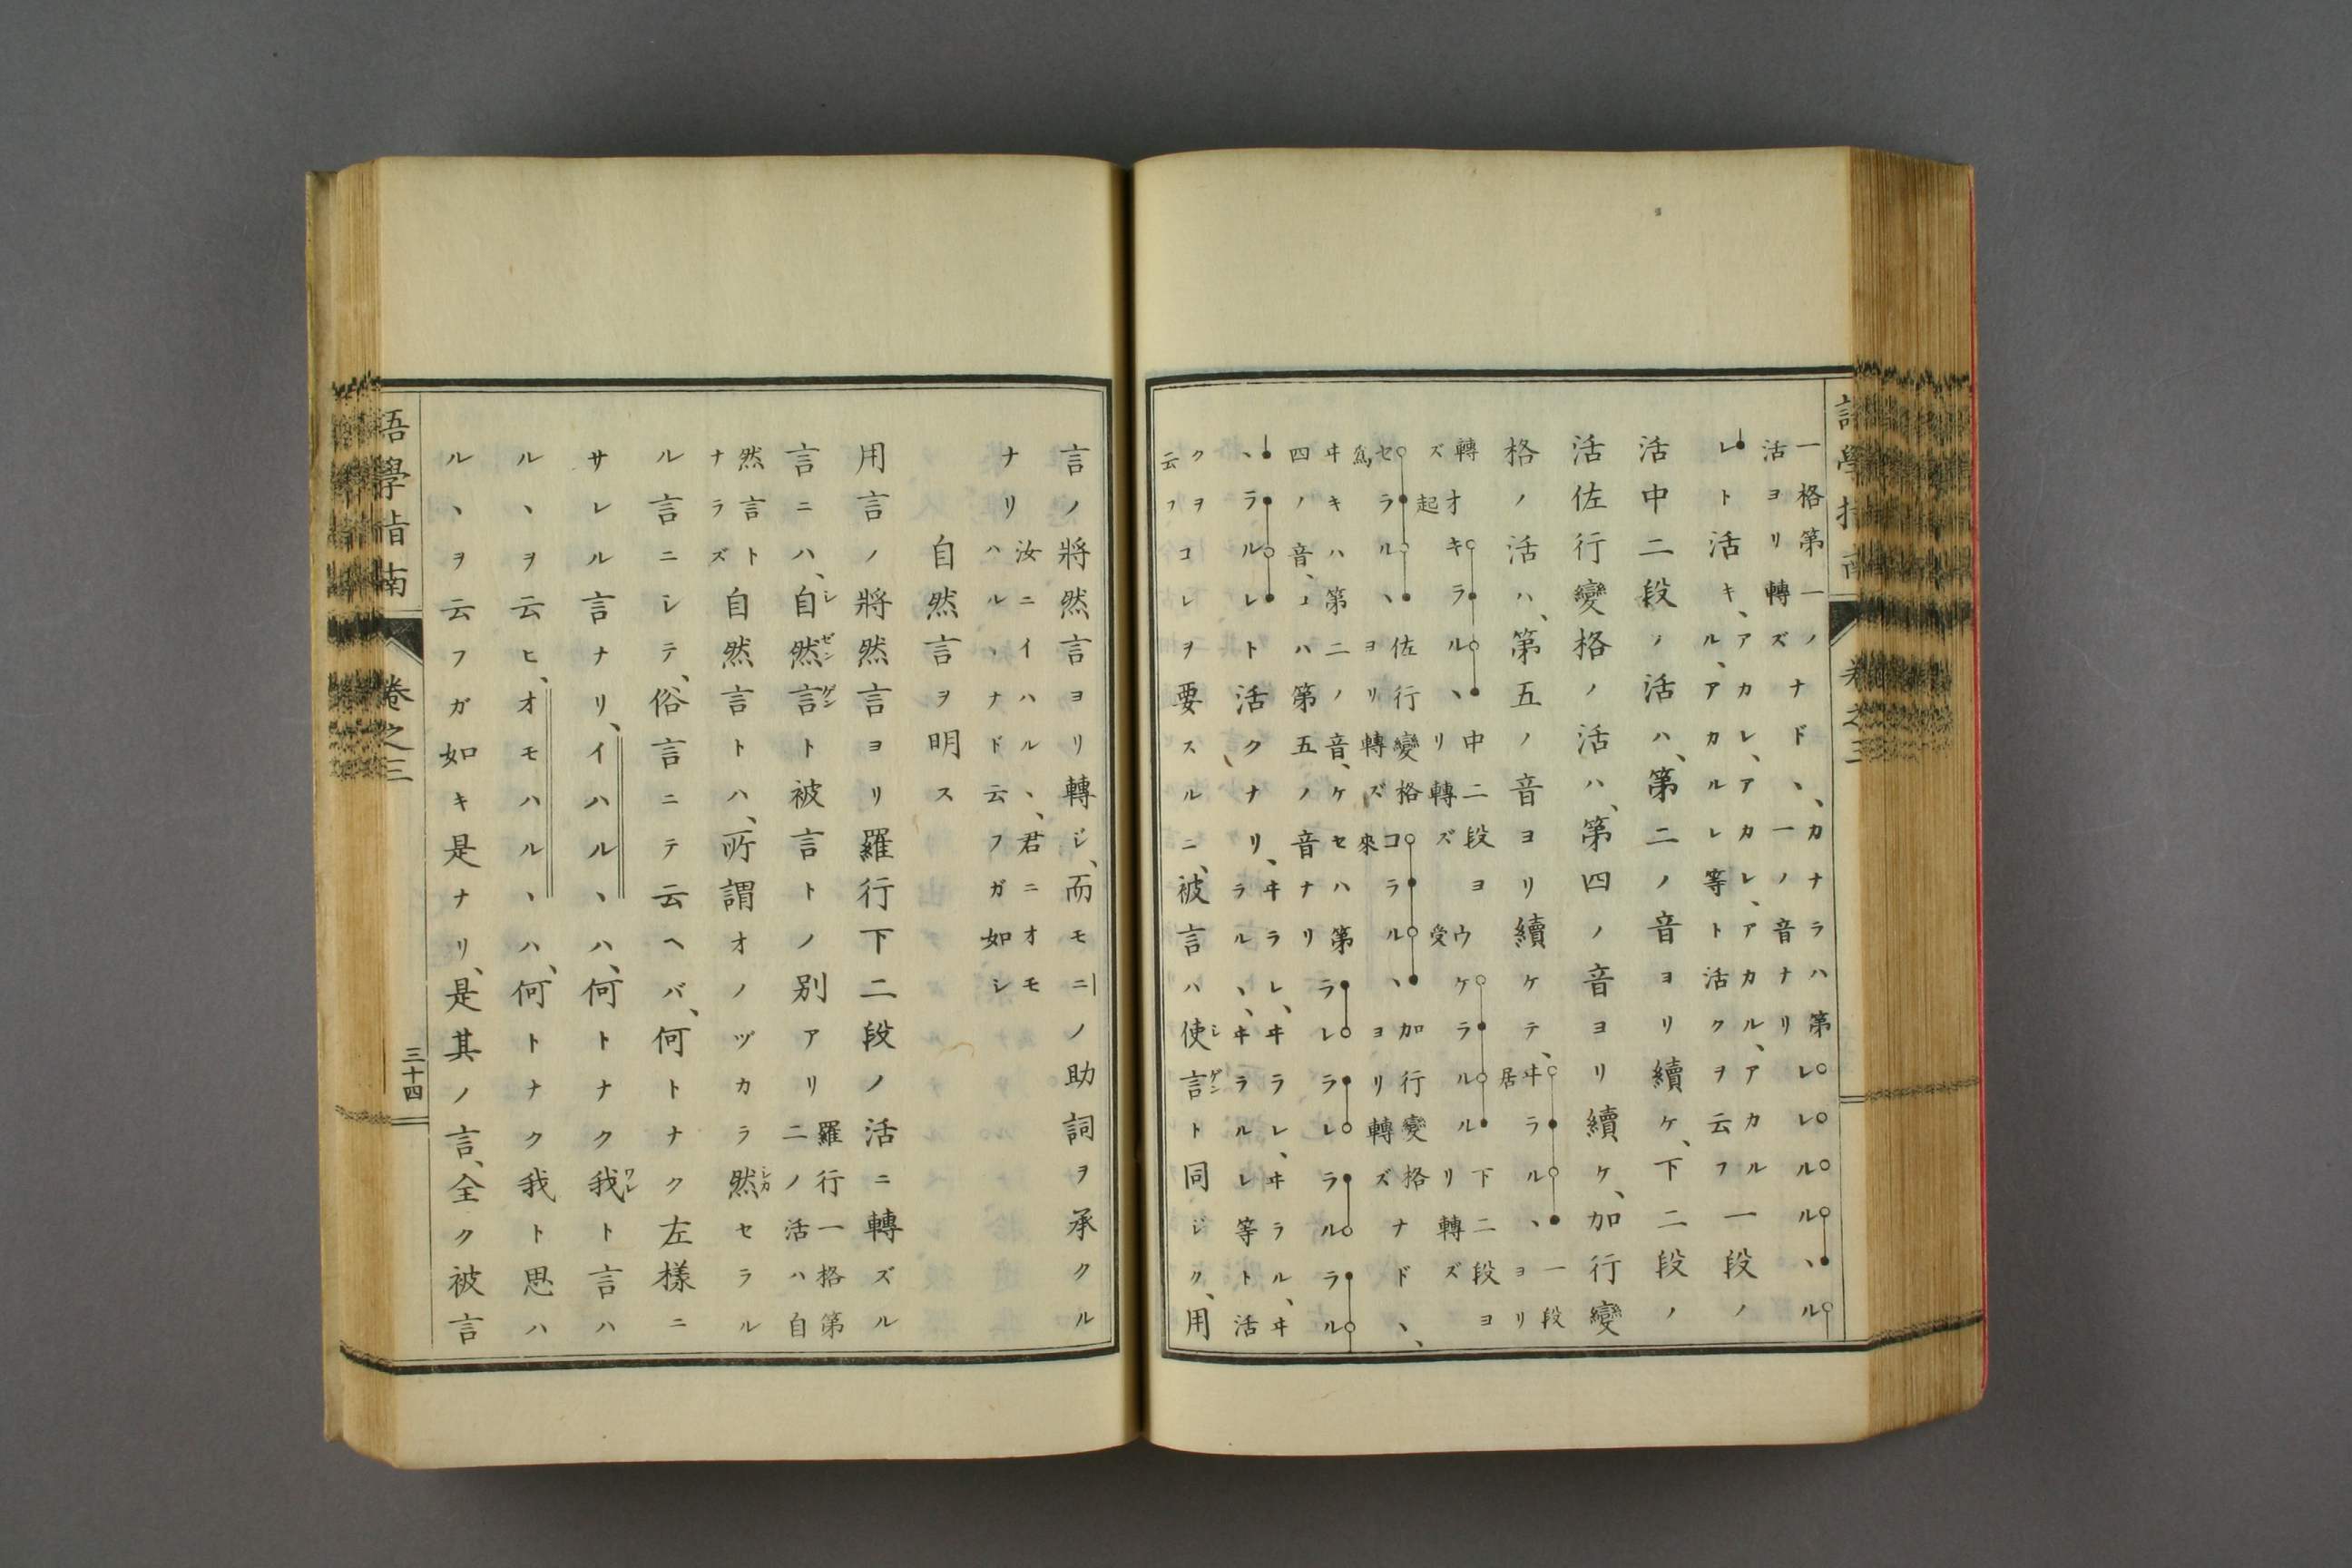 語學指南 卷之三
一格第一ノ活ヨリ轉ズナド、カナラハ第一ノ音ナリレレルルヽル
レト活キ、アカレ、アカレ、アカル、アカル、アカルレ等ト活クヲ云フ一段ノ
活中二段ノ活ハ、第二ノ音ヨリ續ケ、下二段ノ
活佐行變格ノ活ハ、第四ノ音ヨリ續ケ、加行變
格ノ活ハ、第五ノ音ヨリ續ケテ、居ヰラルヽ一段ヨリ
轉ズ起オキラルヽ中二段ヨリ轉ズ受ウケラルル下二段ヨリ轉ズ
爲セラルヽ佐行變格ヨリ轉ズ來コラルヽ加行變格ヨリ轉ズナド、
ヰキハ第二ノ音、ケセハ第四ノ音、コハ第五ノ音ナリラレラレラルラル
ヽラルルレト活クナリ、ヰラレ、ヰラレ、ヰラル、ヰラルヽ、ヰラルレ等ト活
クヲ云フコレヲ要スルニ、被言ハ使言シゲント同ジク、用
言ノ將然言ヨリ轉ジ、而モニノ助詞ヲ承クル
ナリ汝ニイハルヽ、君ニオモハルヽナド云フガ如シ
自然言ヲ明ス
用言ノ將然言ヨリ羅行下二段ノ活ニ轉ズル
言ニハ、自然言シゼンゲント被言トノ別アリ羅行一格第二ノ活ハ自
然言トナラズ自然言トハ、所謂オノヅカラ然シカセラル
ル言ニシテ、俗言ニテ云ヘバ、何トナク左樣ニ
サレル言ナリ、イハルヽハ、何トナク我ワレト言ハ
ルヽヲ云ヒ、オモハルヽハ、何トナク我ト思ハ
ルヽヲ云フガ如キ是ナリ、是其ノ言、全ク被言
語學指南 卷之三 三十四